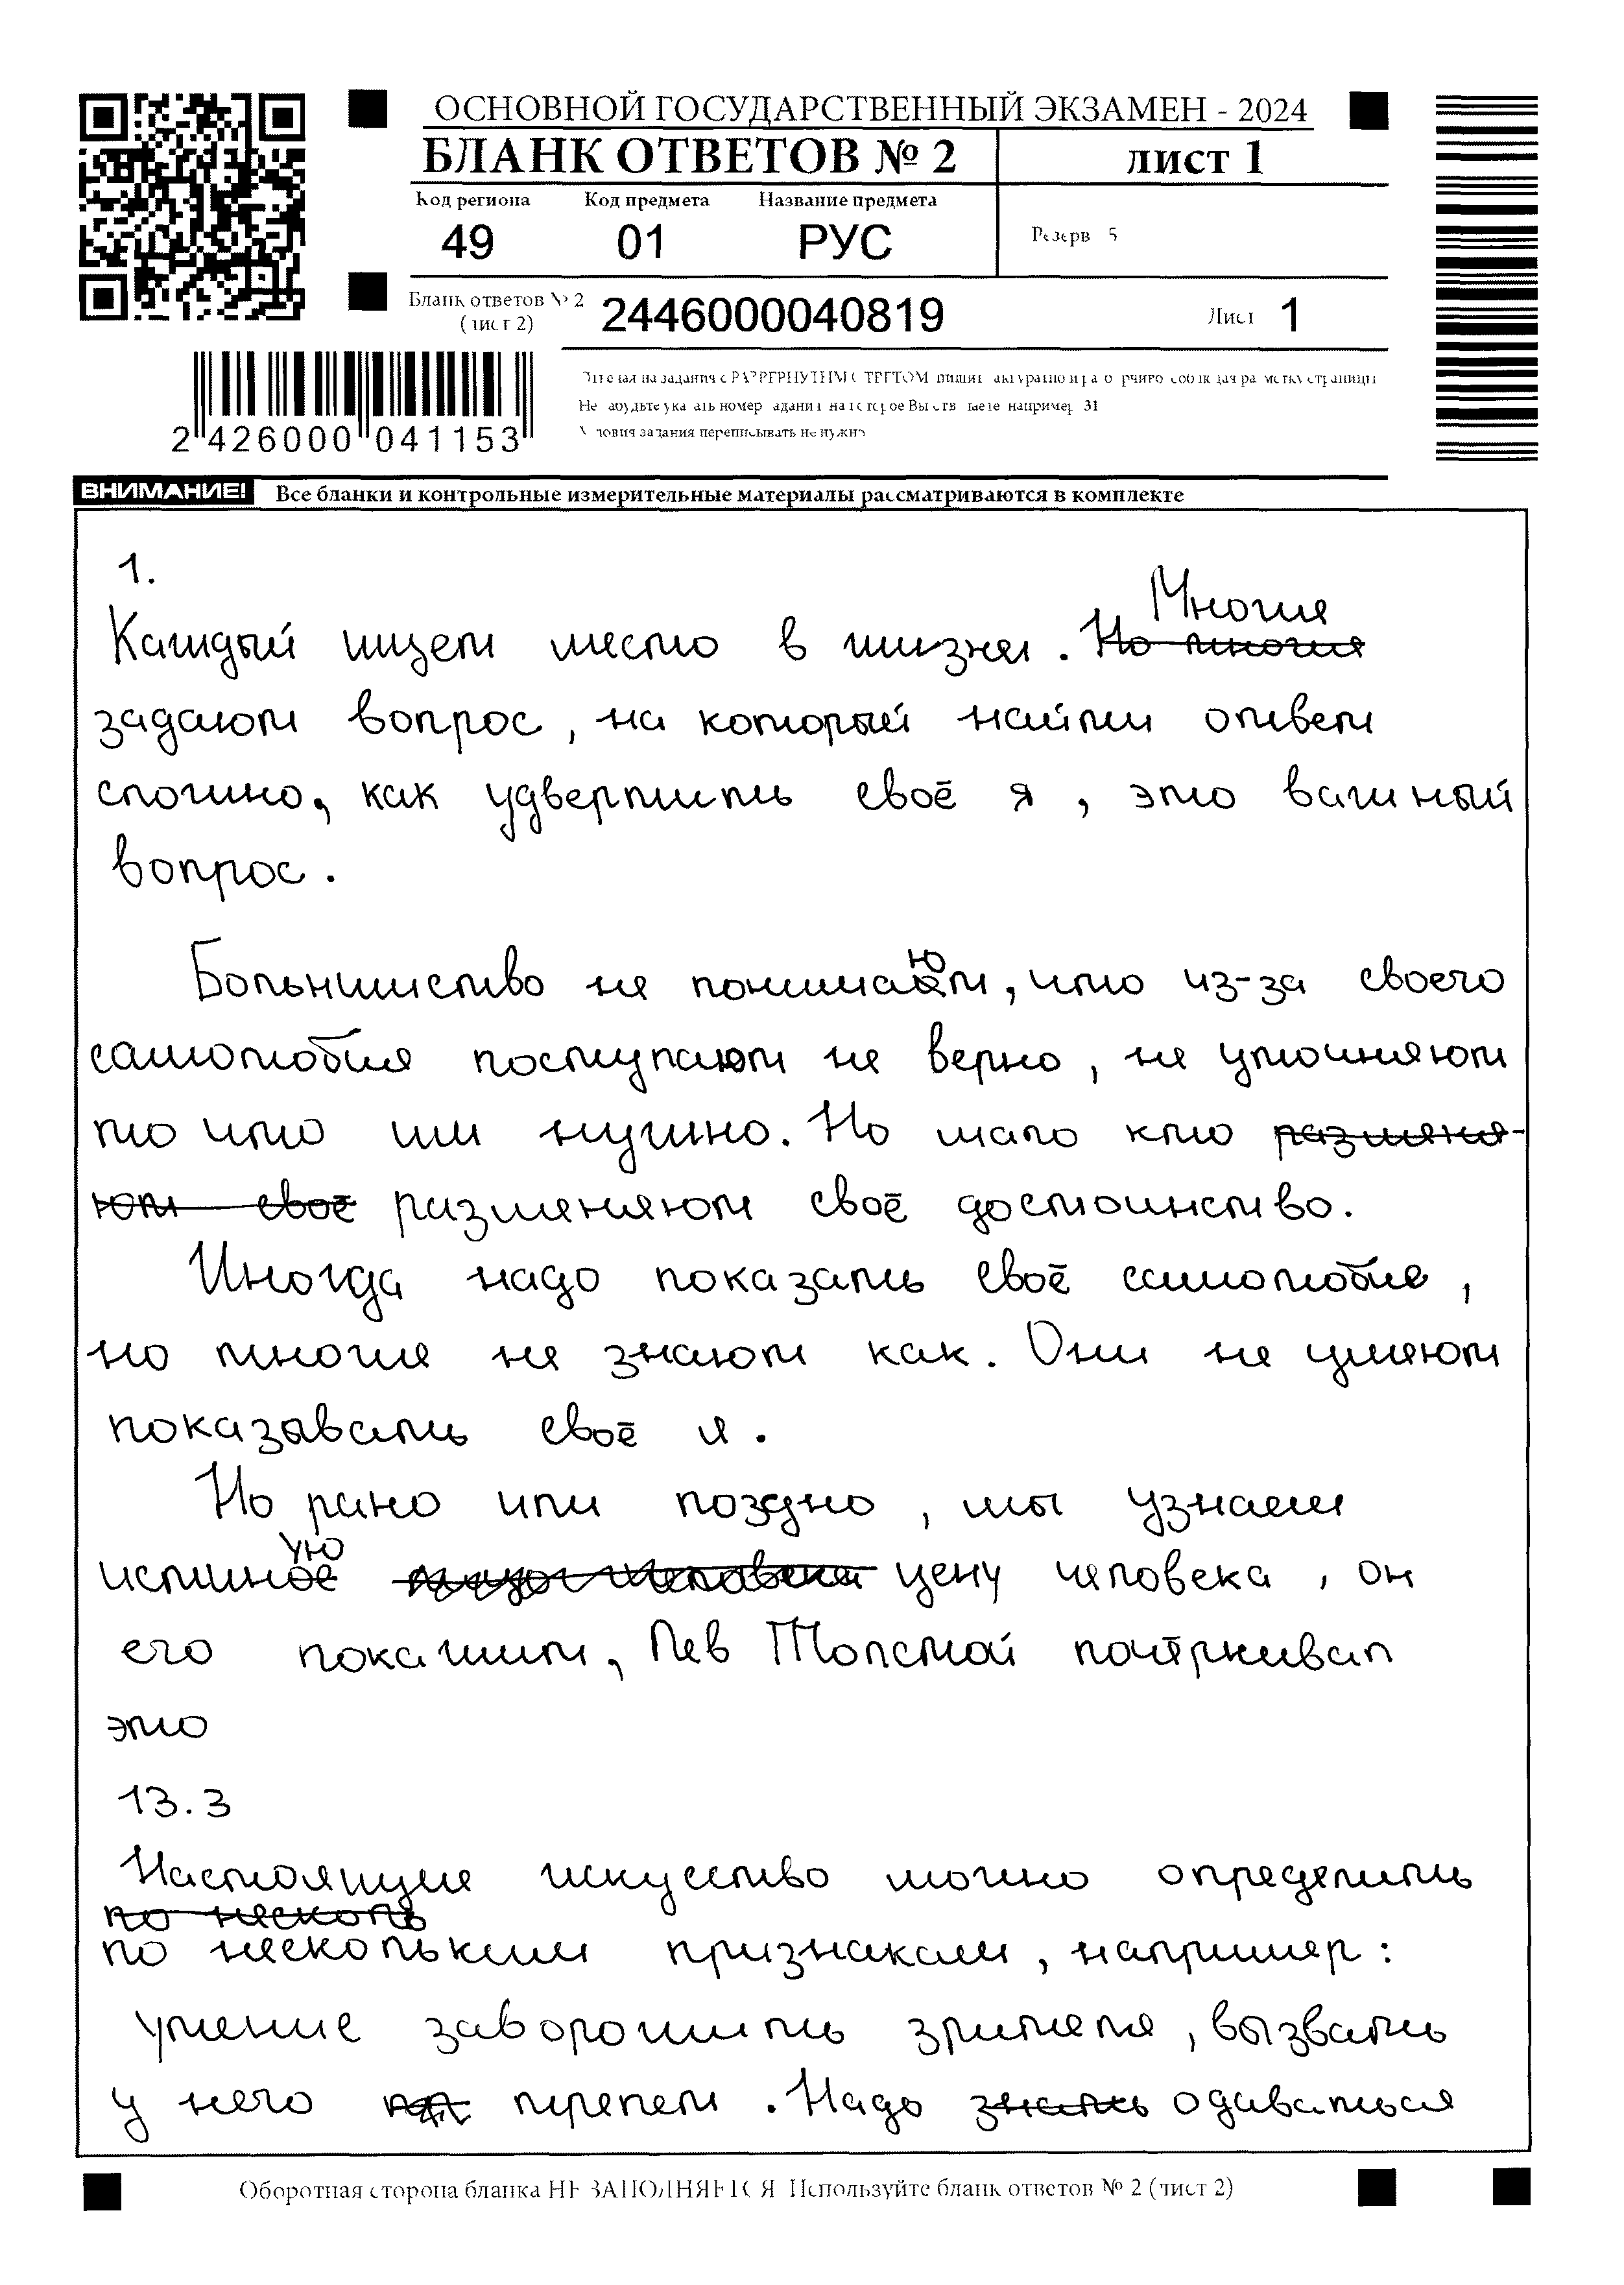 ОСНОВНОЙ ГОСУДАРСТВЕННЫЙ ЭКЗАМЕН - 2024
БЛАНК ОТВЕТОВ № 2 лист 1
Код региона Код предмета Название предмета
49 01 РУС Резерв 5
Бланк ответов № 2 (лист 2) 2446000040819 Лист 1
2 426000 041153
ВНИМАНИЕ! Все бланки и контрольные измерительные материалы рассматриваются в комплекте
1.
Каждый ищет место в жизни. Но многие Многие
задают вопрос, на который найти ответ
сложно, как удвертить своё я, это важный
вопрос.
Большинство не понимают, что из-за своего
самолюбия поступают не верно, не уточняют
то что им нужно. Но мало кто разменя-
ют своё разменяют своё достоинство.
Иногда надо показать своё самолюбие,
но многие не знают как. Они не умеют
показавать своё я.
Но рано или поздно, мы узнаем
истиную цену человека, он
его покажит, Лев Толстой почёркивал
это
13.3
Настоящие искусство можно определить
по несколь
по нескольким признакам, например:
умение заворожить зрителя, вызвать
у него трепет. Надо знать одаваться
Оборотная сторона бланка НЕ ЗАПОЛНЯЕТСЯ Используйте бланк ответов № 2 (лист 2)